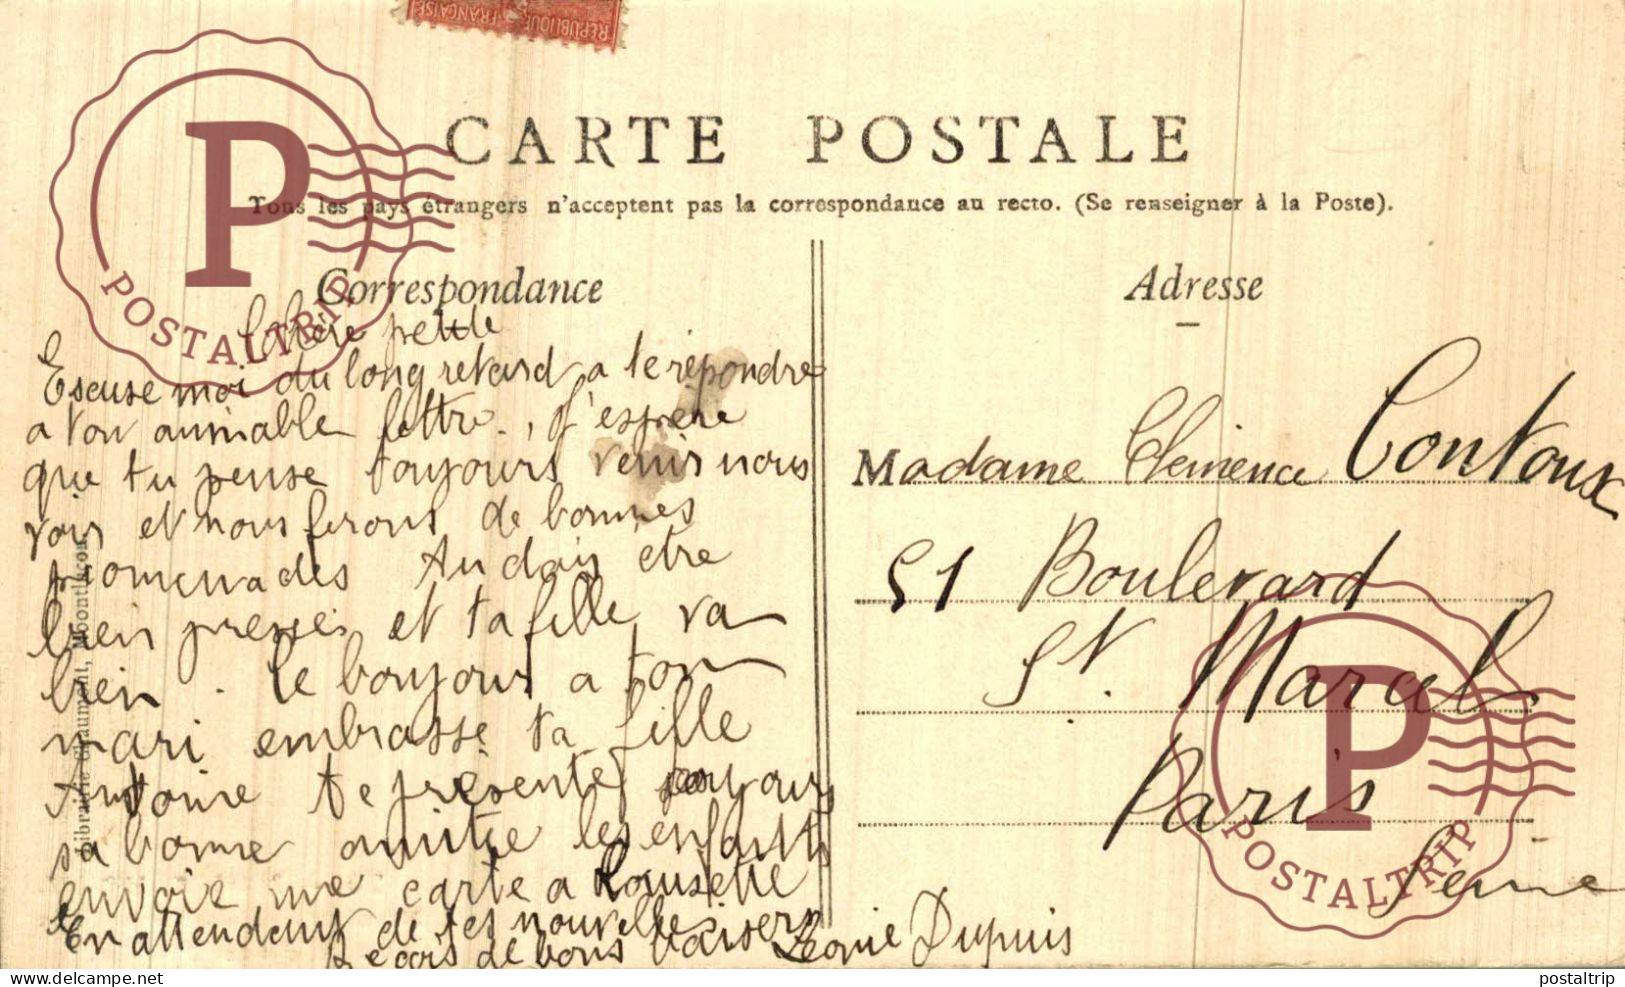 RÉPUBLIQUE FRANÇAISE
CARTE POSTALE
Tous les pays étrangers n'acceptent pas la correspondance au recto. (Se renseigner à la Poste).
Correspondance
Adresse
chère petite
Escuse moi du long retard a te répondre
a ton aimable lettre, J'espère
que tu pense toujours venir nous
voir et nous ferons de bonnes
promenades tu dois être
bien presser et ta fille va
bien. le bonjour a ton
mari embrasse ta fille
Antoine te présente toujours
sa bonne amitie les enfants
envoie une carte a Lousette
En attendant de tes nouvelles
Recois de bons baisers Leonie Dupuis
Madame Clemence Contoux
51 Boulevard
St. Marcel
Paris
Seine
Librairie Chaumont, Montluçon
P
POSTALTRIP
P
POSTALTRIP
delcampe.net
postaltrip